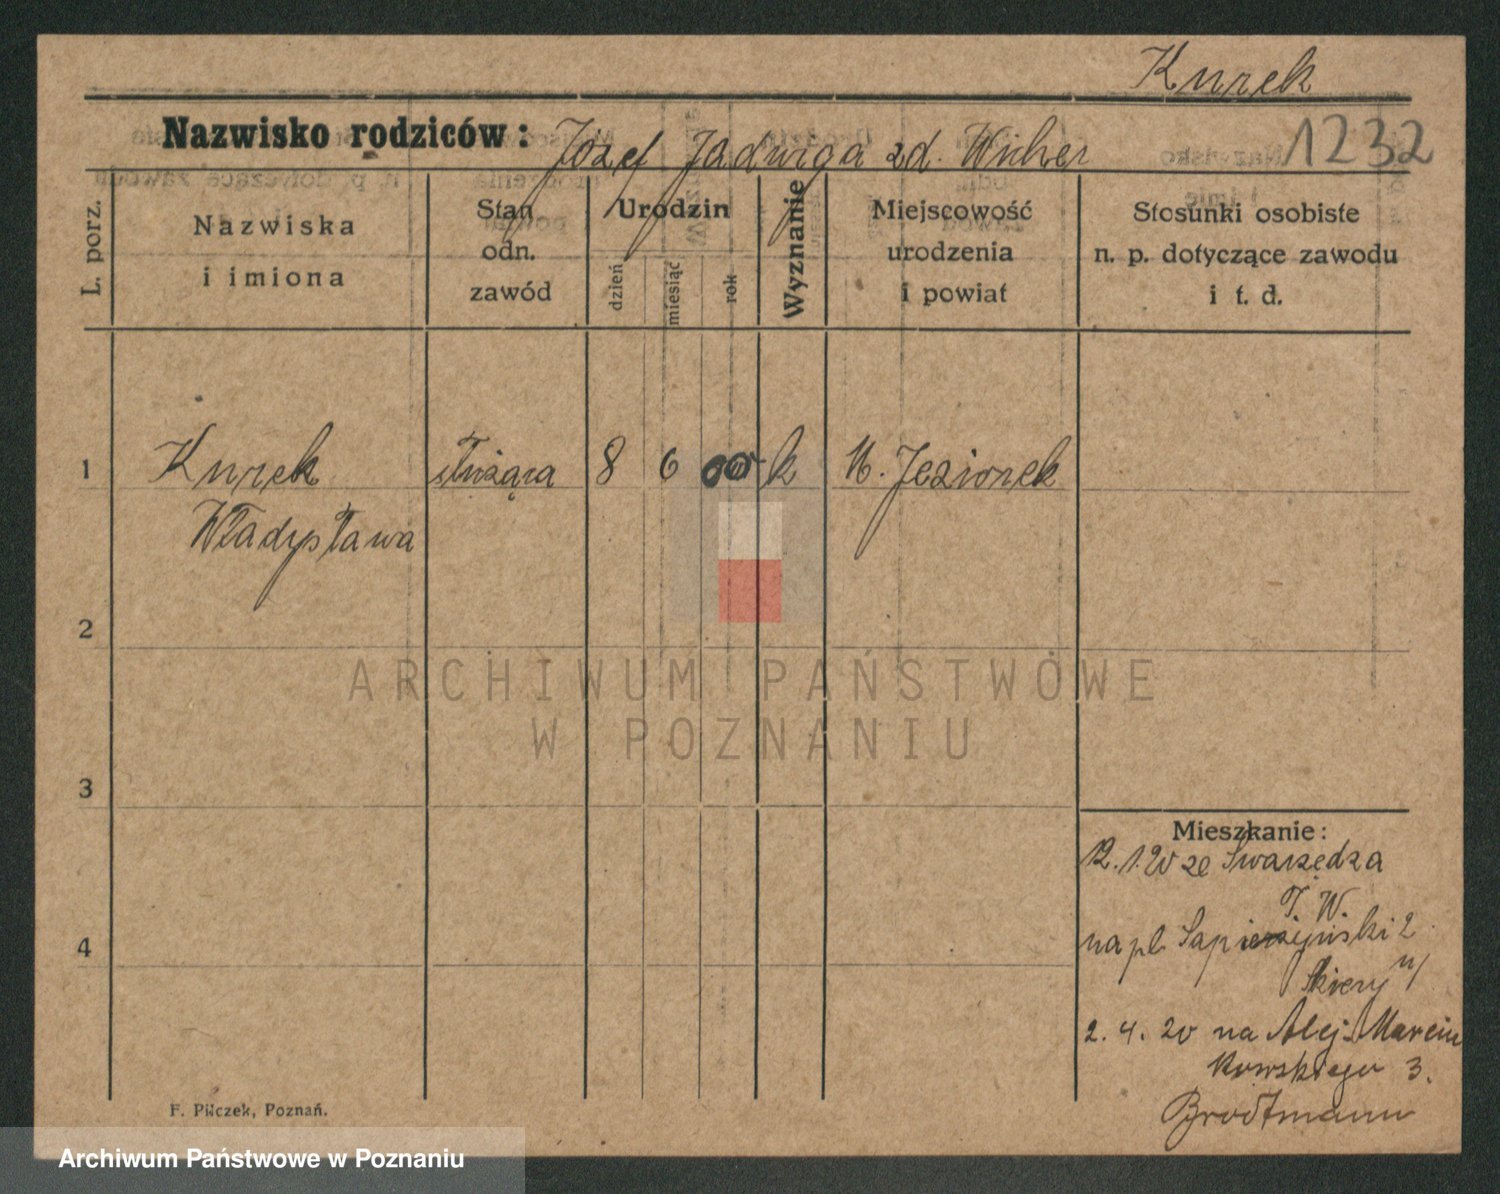 Kurek
Nazwisko rodziców: Józef Jadwiga zd. Wicher
1232
L. porz.
Nazwiska
i imiona
Stan
odn.
zawód
Urodzin
dzień
miesiąc
rok
Wyznanie
Miejscowość
urodzenia
i powiat
Stosunki osobiste
n. p. dotyczące zawodu
i t. d.
1
Kurek służąca 8 6 00 k M. Jeziorek
Władysława
2
ARCHIWUM PAŃSTWOWE
W POZNANIU
3
4
Mieszkanie:
12.1.20 ze Swarzędza
T. W.
na pl. 2
2. 4. 20 na Alej. Marcin
kowskiego 3.
Brodtmann
F. Pilczek, Poznań.
Archiwum Państwowe w Poznaniu